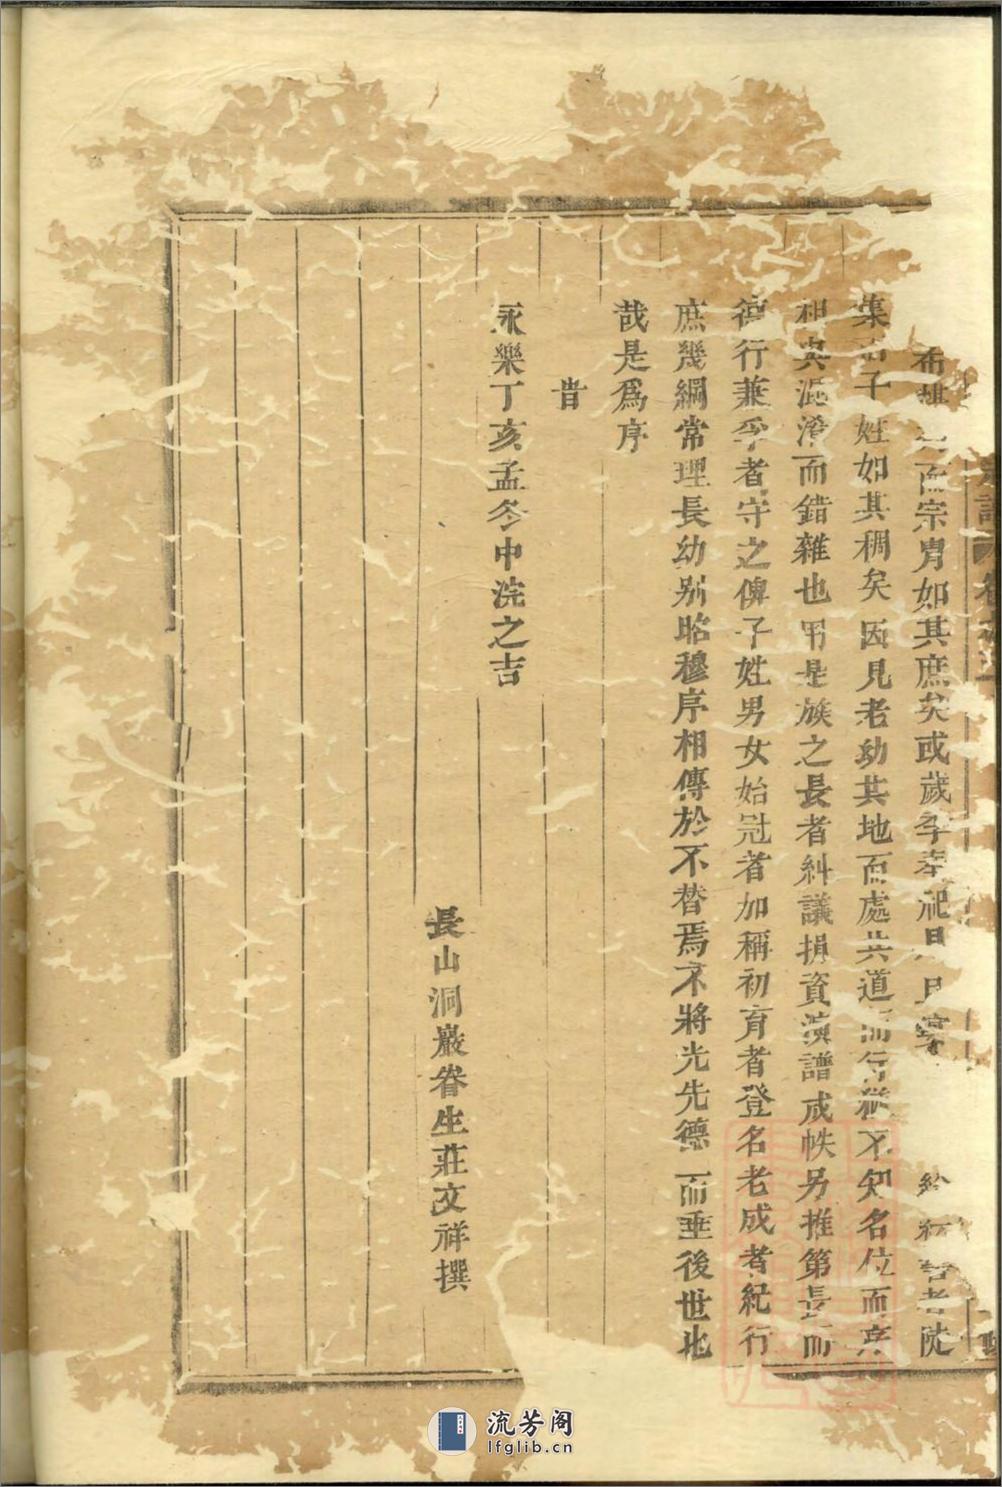 而宗冑如其庶矣或歲年奉祀
集 子姓如其稠矣因見老幼共地而處共道而行 不知名位而
混淆而錯雜也用是族之長者糾議損資演譜成帙另推第長而
德行兼孚者守之俾子姓男女始冠者加稱初育者登名老成者紀行
庶幾綱常理長幼別昭穆序相傳於不替焉不將光先德而垂後世也
哉是爲序
旹
永樂丁亥孟冬中浣之吉
長山洞巖眷生莊文祥撰
流芳阁
lfglib.cn